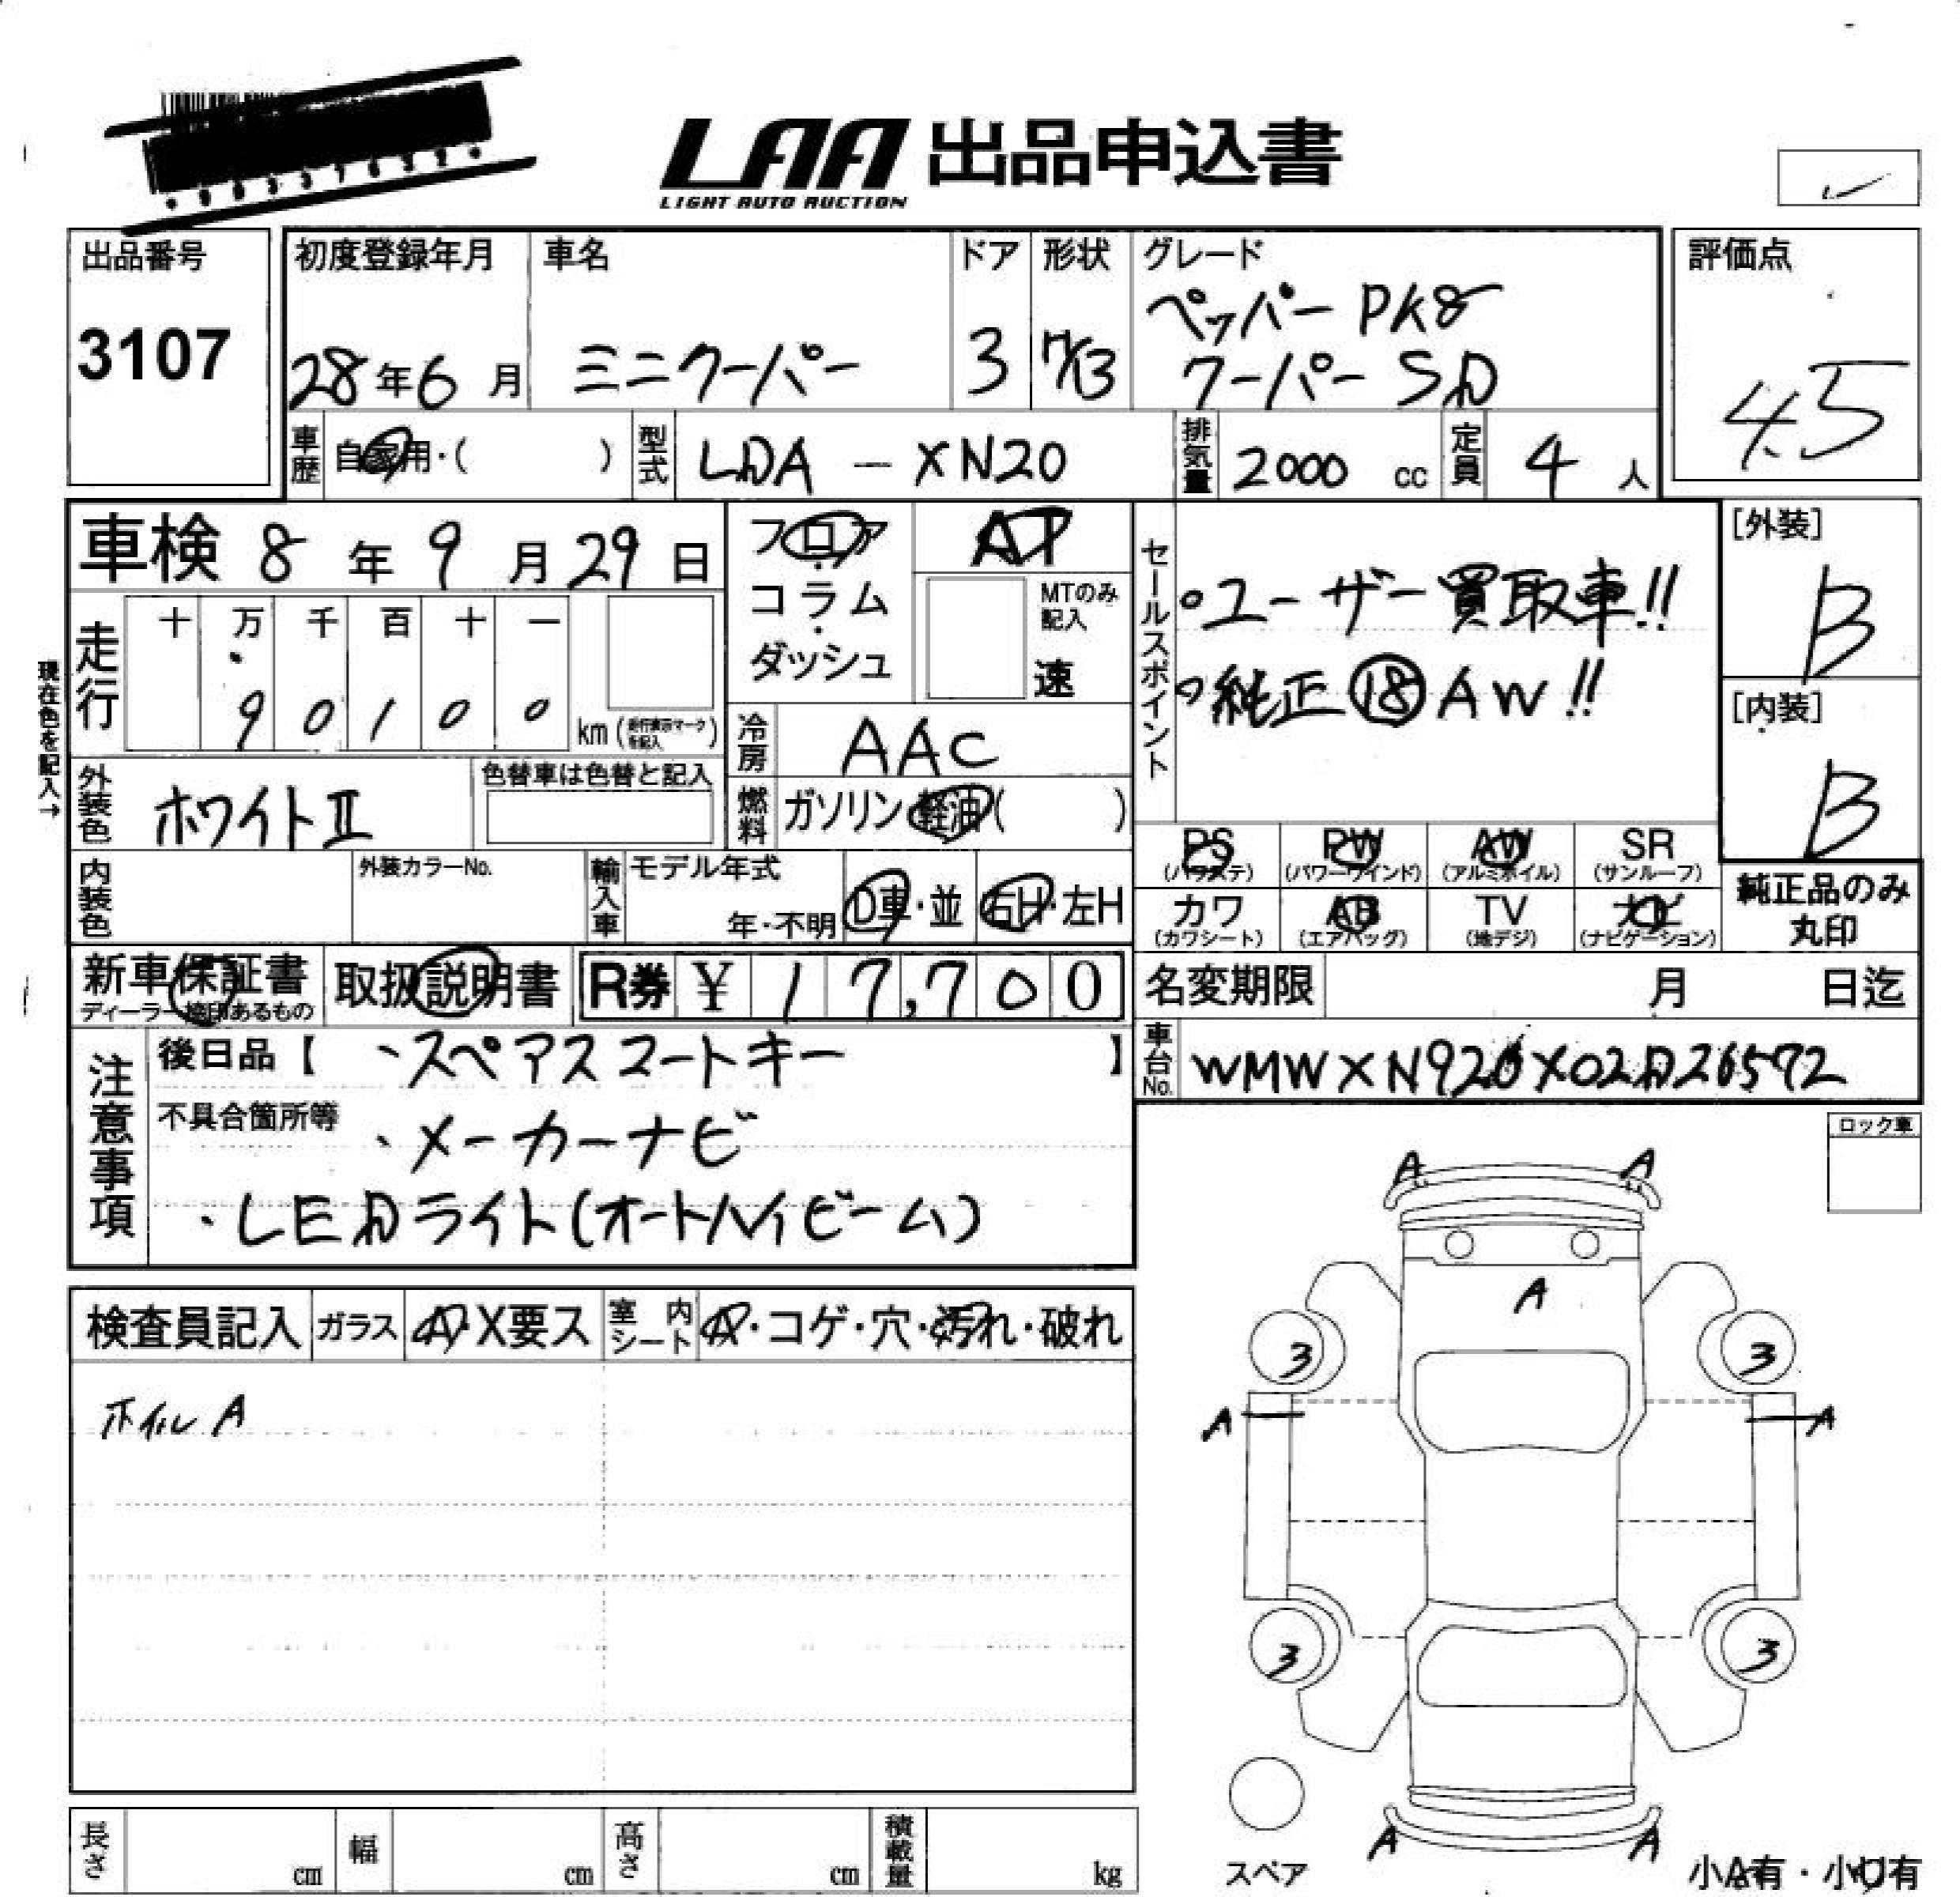 LAA 出品申込書
LIGHT AUTO AUCTION
出品番号
3107
初度登録年月
28年6月
車名
ミニクーパー
ドア
3
形状
グレード
ペッパーPKg
クーパーSD
評価点
4.5
車歴
自家用・( )
型式
LDA - XN20
排気量
2000 cc
定員
4 人
車検 8年9月29日
フロア
コラム
ダッシュ
AT
MTのみ記入
速
セールスポイント
○ユーザー買取車!!
○純正⑱AW!!
[外装]
B
[内装]
B
現在色を記入→
走行
十 万 千 百 十 一
9 0 1 0 0
km(走行表示マークを記入)
冷房
AAC
外装色
ホワイトⅡ
色替車は色替と記入
燃料
ガソリン・軽油( )
PS
(パワステ)
PW
(パワーウインド)
AW
(アルミホイル)
SR
(サンルーフ)
内装色
外装カラーNo.
輸入車
モデル年式
年・不明
D車・並
右H・左H
カワ
(カワシート)
AB
(エアバッグ)
TV
(地デジ)
ナビ
(ナビゲーション)
純正品のみ
丸印
新車保証書
ディーラー捺印あるもの
取扱説明書
R券 ¥ 17,700
名変期限 月 日迄
注意事項
後日品【 、スペアスマートキー 】
車台No.
WMWXN920X02D26572
不具合箇所等
、メーカーナビ
・LEDライト(オートハイビーム)
ロック車
検査員記入
ガラス
A・X要ス
室内シート
A・コゲ・穴・汚れ・破れ
ホイルA
A A
A
3 3
A A
3 3
A A
スペア
小A有・小U有
長さ cm
幅 cm
高さ cm
積載量 kg